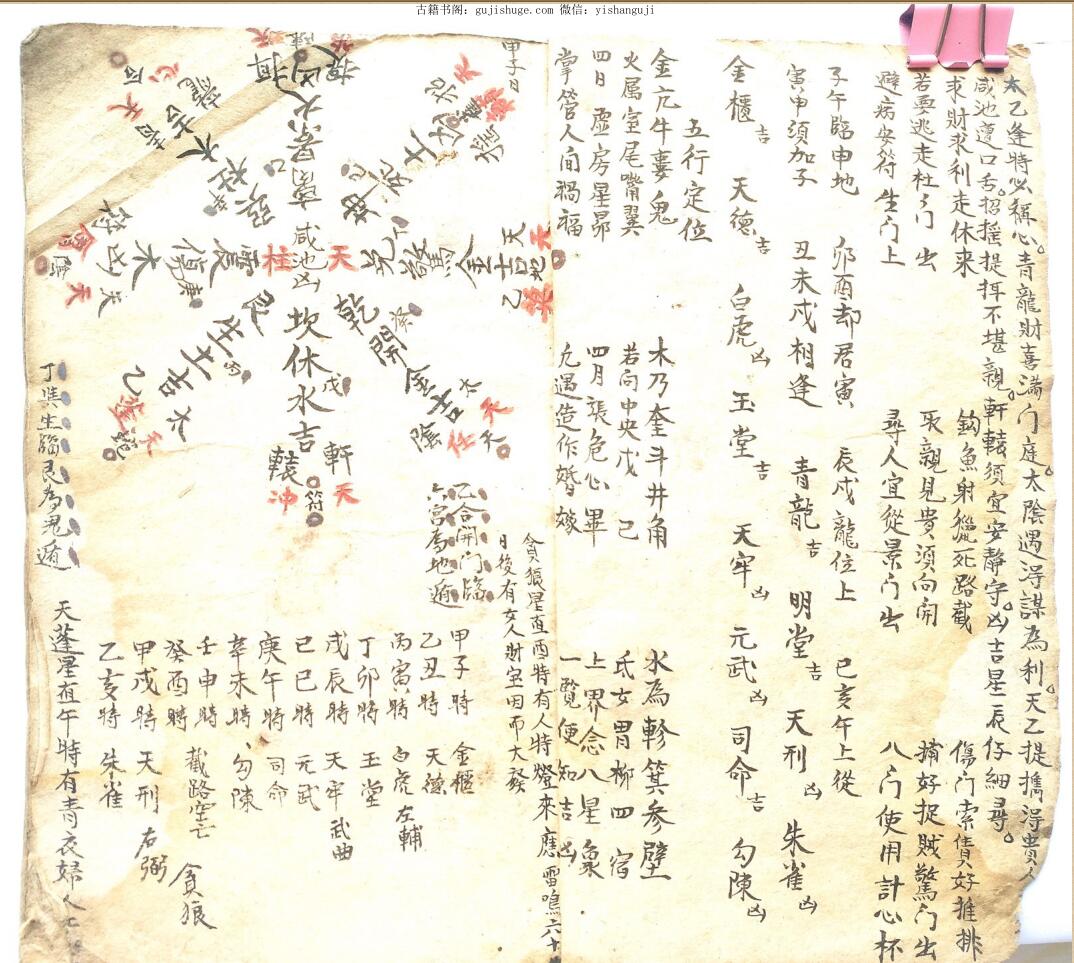 古籍书阁：gujishuge.com 微信：yishanguji
太乙逢特必稱心。青龍財喜滿门庭。太陰遇淂謀為利。天乙提擕淂貴人
咸池遭口舌。招摇提挕不堪親。軒轅須宜安靜守。凶吉星辰仔細尋。
求財求利走休來 鈎魚射獵死路截 傷门索債好推排
若要逃走杜门出 取親見贵須向開 捕好捉贼驚门出
避病安符生门上 尋人宜從景门出 八门使用計心杯
子午臨申地 卯酉却君寅 辰戍龍位上 巳亥午上從
寅申須加子 丑未戍相逢 青龍吉 明堂吉 天刑凶 朱雀凶
金櫃吉 天德吉 白虎凶 玉堂吉 天牢凶 元武凶 司命吉 勾陳凶
五行定位
金亢牛婁鬼 木乃奎斗井角 水為軫箕参壁
火属室尾嘴翼 若向中央戊己 氐女胃柳四宿
四日虚房星昴 四月張危心畢 上界念八星象
掌管人间禍福 凢遇造作婚嫁 一覧便知吉凶
貪狼星直酉特有人特燈來應雷鳴六十
日後有女人財宝因而大發
甲子日
乙合開门臨
六宫為地遁
甲子時 金櫃
乙丑時 天德
丙寅時 白虎 左輔
丁卯時 玉堂
戊辰時 天牢 武曲
巳巳時 元武
庚午時 司命
辛未時 勾陳
壬申時 截路空亡
癸酉時 貪狼
甲戌時 天刑 右弼
乙亥時 朱雀
天蓬星直午特有青衣婦人
咸池凶
坎休水吉
軒轅
天冲符
乾開金吉
天任
陰
天柱
震傷木凶
艮生土吉
天蓬
離景火凶
兌驚金吉